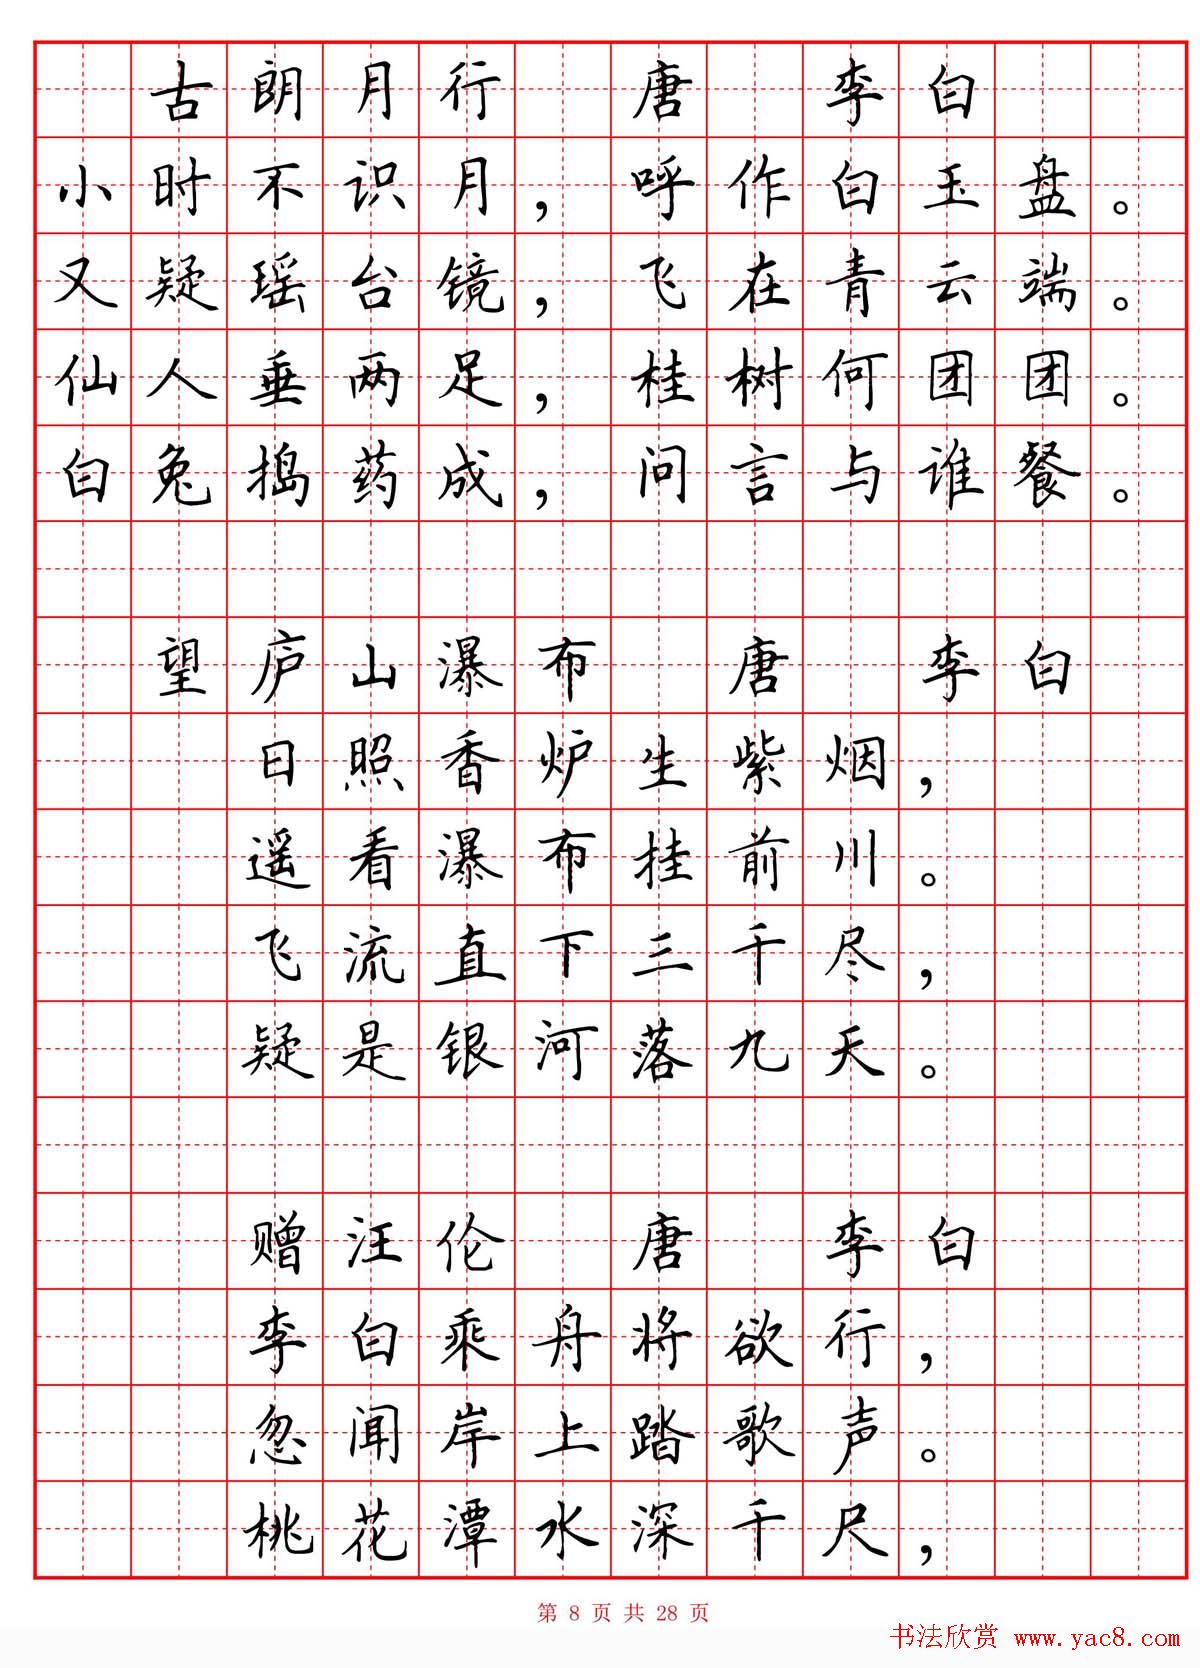 古朗月行 唐 李白
小时不识月，呼作白玉盘。
又疑瑶台镜，飞在青云端。
仙人垂两足，桂树何团团。
白兔捣药成，问言与谁餐。
望庐山瀑布 唐 李白
日照香炉生紫烟，
遥看瀑布挂前川。
飞流直下三千尽，
疑是银河落九天。
赠汪伦 唐 李白
李白乘舟将欲行，
忽闻岸上踏歌声。
桃花潭水深千尺，
第 8 页 共 28 页
书法欣赏 www.yac8.com